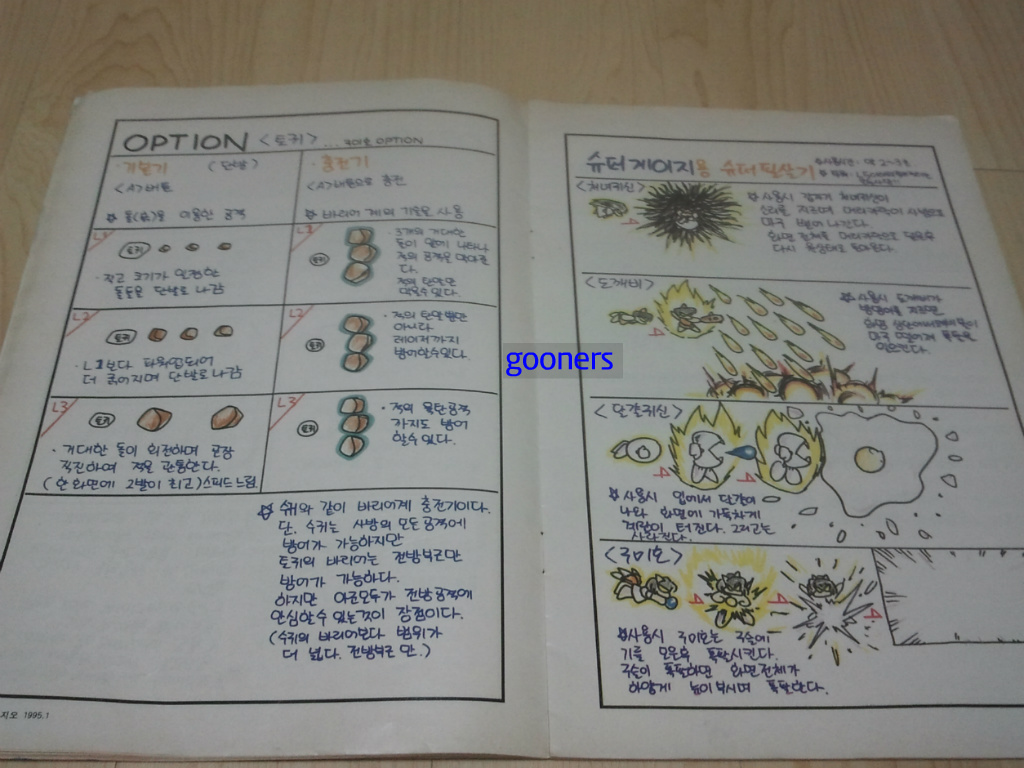 OPTION <토귀> ... 구미호 OPTION
· 기본기 (단발)
<A>버튼
☆ 돌(石)을 이용한 공격
· 충전기
<A>버튼으로 충전
☆ 바리어 계의 기술로 사용
L1
토귀
· 작고 크기가 일정한
돌들을 단발로 나감
L1
토귀
· 3개의 거대한
돌이 앞에 나타나
적의 공격을 막아준
다.
적의 탄알만
막을수있다.
L2
토귀
· L1보다 파워업되어
더 굵어지며 단발로나감
L2
토귀
· 적의 탄알뿐만
아니라
레이저까지
방어할수있다.
L3
토귀
· 거대한 돌이 회전하며 곧장
직진하여 적을 관통한다.
(한 화면에 2발이 최고) 스피드 느림
L3
토귀
· 적의 물탄공격
까지도 방어
할수있다.
☆ 수귀와 같이 바리어계 충전기이다.
단, 수귀는 사방의 모든 공격에
방어가 가능하지만
토귀의 바리어는 전방부근만
방어가 가능하다.
하지만 아군모두가 전방공격에
안심할수 있는것이 장점이다.
(수귀의 바리어보다 범위가
더 넓다. 전방부근 만.)
지오 1995.1
슈퍼 게이지용 슈퍼 필살기
<처녀귀신>
☆ 사용시 갑자기 처녀귀신이
소리를 지르며 머리카락이 사방으로
마구 뻗어 나간다.
화면 전체를 머리카락으로 덮은후
다시 원상태로 돌아온다.
<도깨비>
☆ 사용시 도깨비가
<달걀귀신>
☆ 사용시 입에서 달걀이
나와 화면에 가득하게
계란이 터진다. 그리고는
사라진다.
<구미호>
☆ 사용시 구미호는 구슬에
기를 모은후 폭팔시킨다.
구슬이 폭팔하면 화면전체가
하얗게 눈이부시며 폭팔한다.
gooners